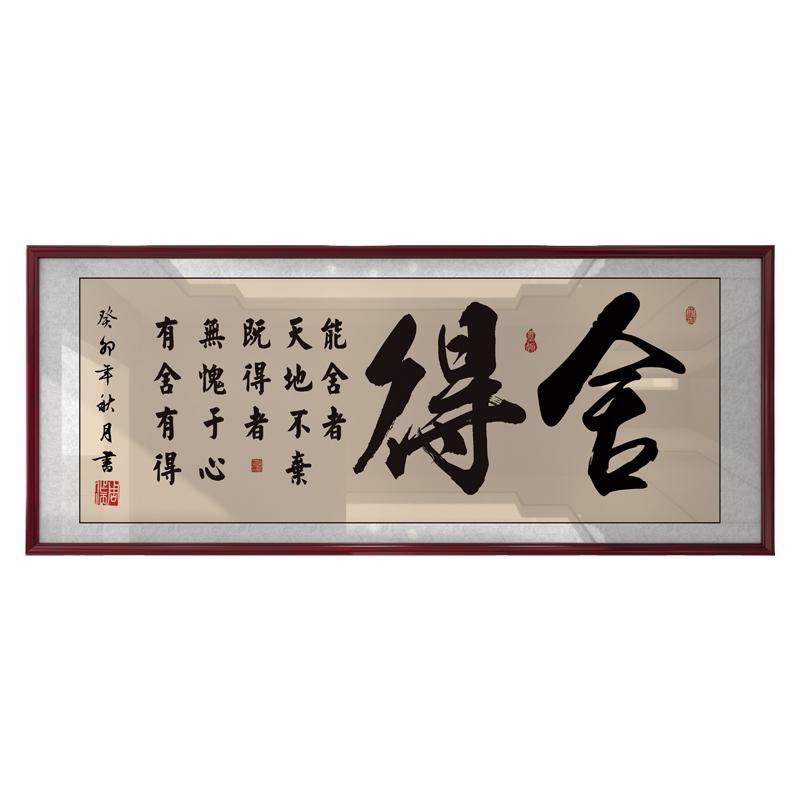 舍得
能舍者
天地不棄
既得者
無愧于心
有舍有得
癸卯年秋月書